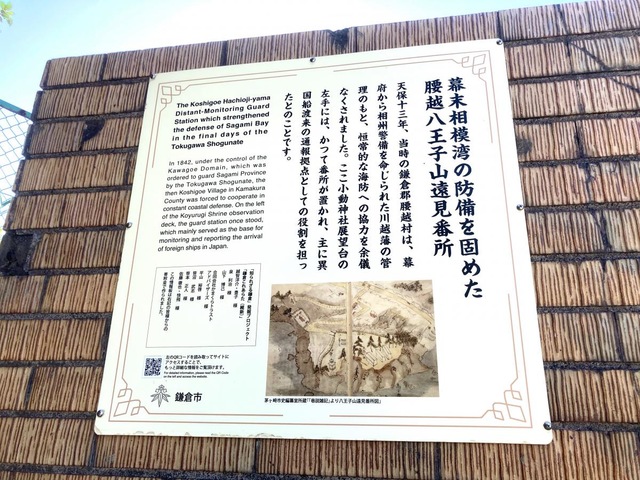 幕末相模湾の防備を固めた
腰越八王子山遠見番所
天保十三年、当時の鎌倉郡腰越村は、幕
府から相州警備を命じられた川越藩の管
理のもと、恒常的な海防への協力を余儀
なくされました。ここ小動神社展望台の
左手には、かつて番所が置かれ、主に異
国船渡来の通報拠点としての役割を担っ
たとのことです。
The Koshigoe Hachioji-yama
Distant-Monitoring Guard
Station which strengthened
the defense of Sagami Bay
in the final days of the
Tokugawa Shogunate
In 1842, under the control of the
Kawagoe Domain, which was
ordered to guard Sagami Province
by the Tokugawa Shogunate, the
then Koshigoe Village in Kamakura
County was forced to cooperate in
constant coastal defense. On the left
of the Koyurugi Shrine observation
deck, the guard station once stood,
which mainly served as the base for
monitoring and reporting the arrival
of foreign ships in Japan.
「知られざる鎌倉」発掘プロジェクト
「鎌倉これあった（網街）」
左のQRコードを読み取ってサイトに
アクセスすることで、
もっと詳細な情報をご覧頂けます。
For detailed information, please read the QR Code
on the left and access the website.
鎌倉市
茅ヶ崎市史編纂室所蔵「「巷田雑記」より八王子山遠見番所図」